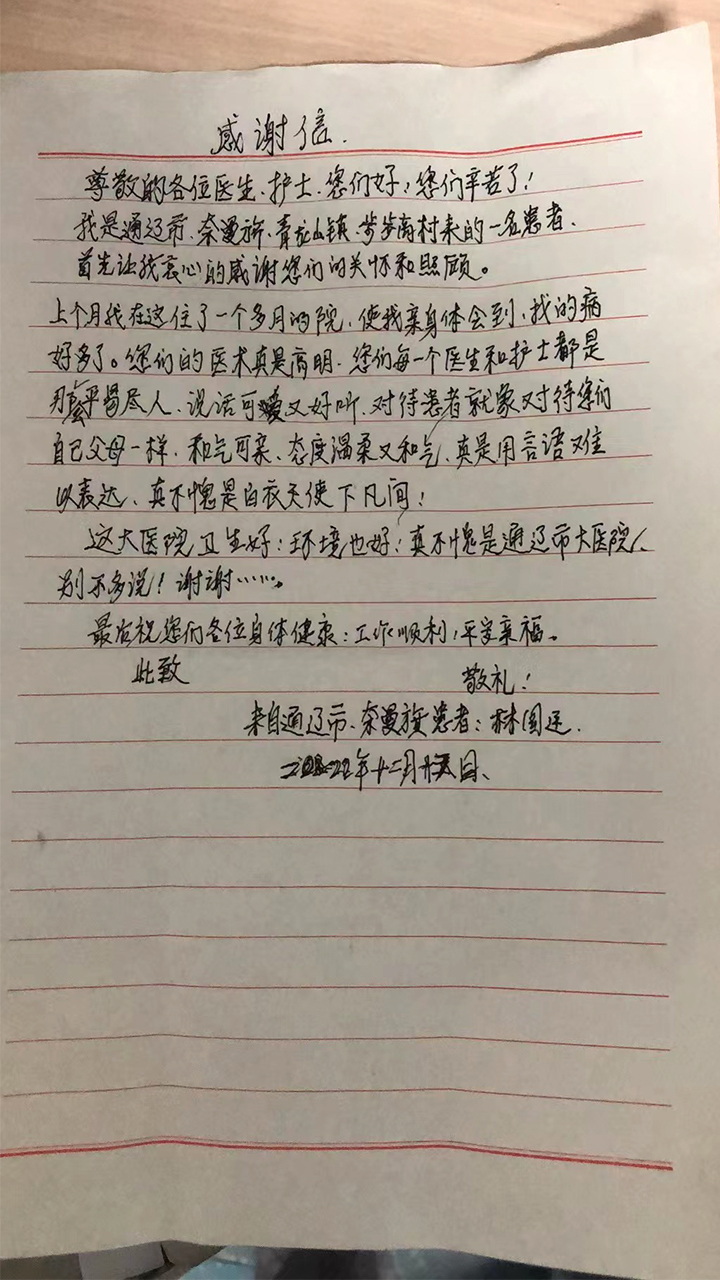 感谢信.
尊敬的各位医生、护士、您们好！您们辛苦了！
我是通辽市、奈曼旗、青龙山镇、步步高村来的一名患者、
首先让我衷心的感谢您们的关怀和照顾。
上个月我在这住了一个多月的院、使我亲身体会到、我的病
好多了。您们的医术真是高明、您们每一个医生和护士都是
那么平易尽人、说话可爱又好听、对待患者就象对待您们
自己父母一样、和气可亲、态度温柔又和气、真是用言语难
以表达、真不愧是白衣天使下凡间！
这大医院卫生好！环境也好！真不愧是通辽市大医院、
别不多说！谢谢……。
最后祝您们各位身体健康！工作顺利！平安幸福。
此致 敬礼！
来自通辽市、奈曼旗患者：林国
年十二月 日、